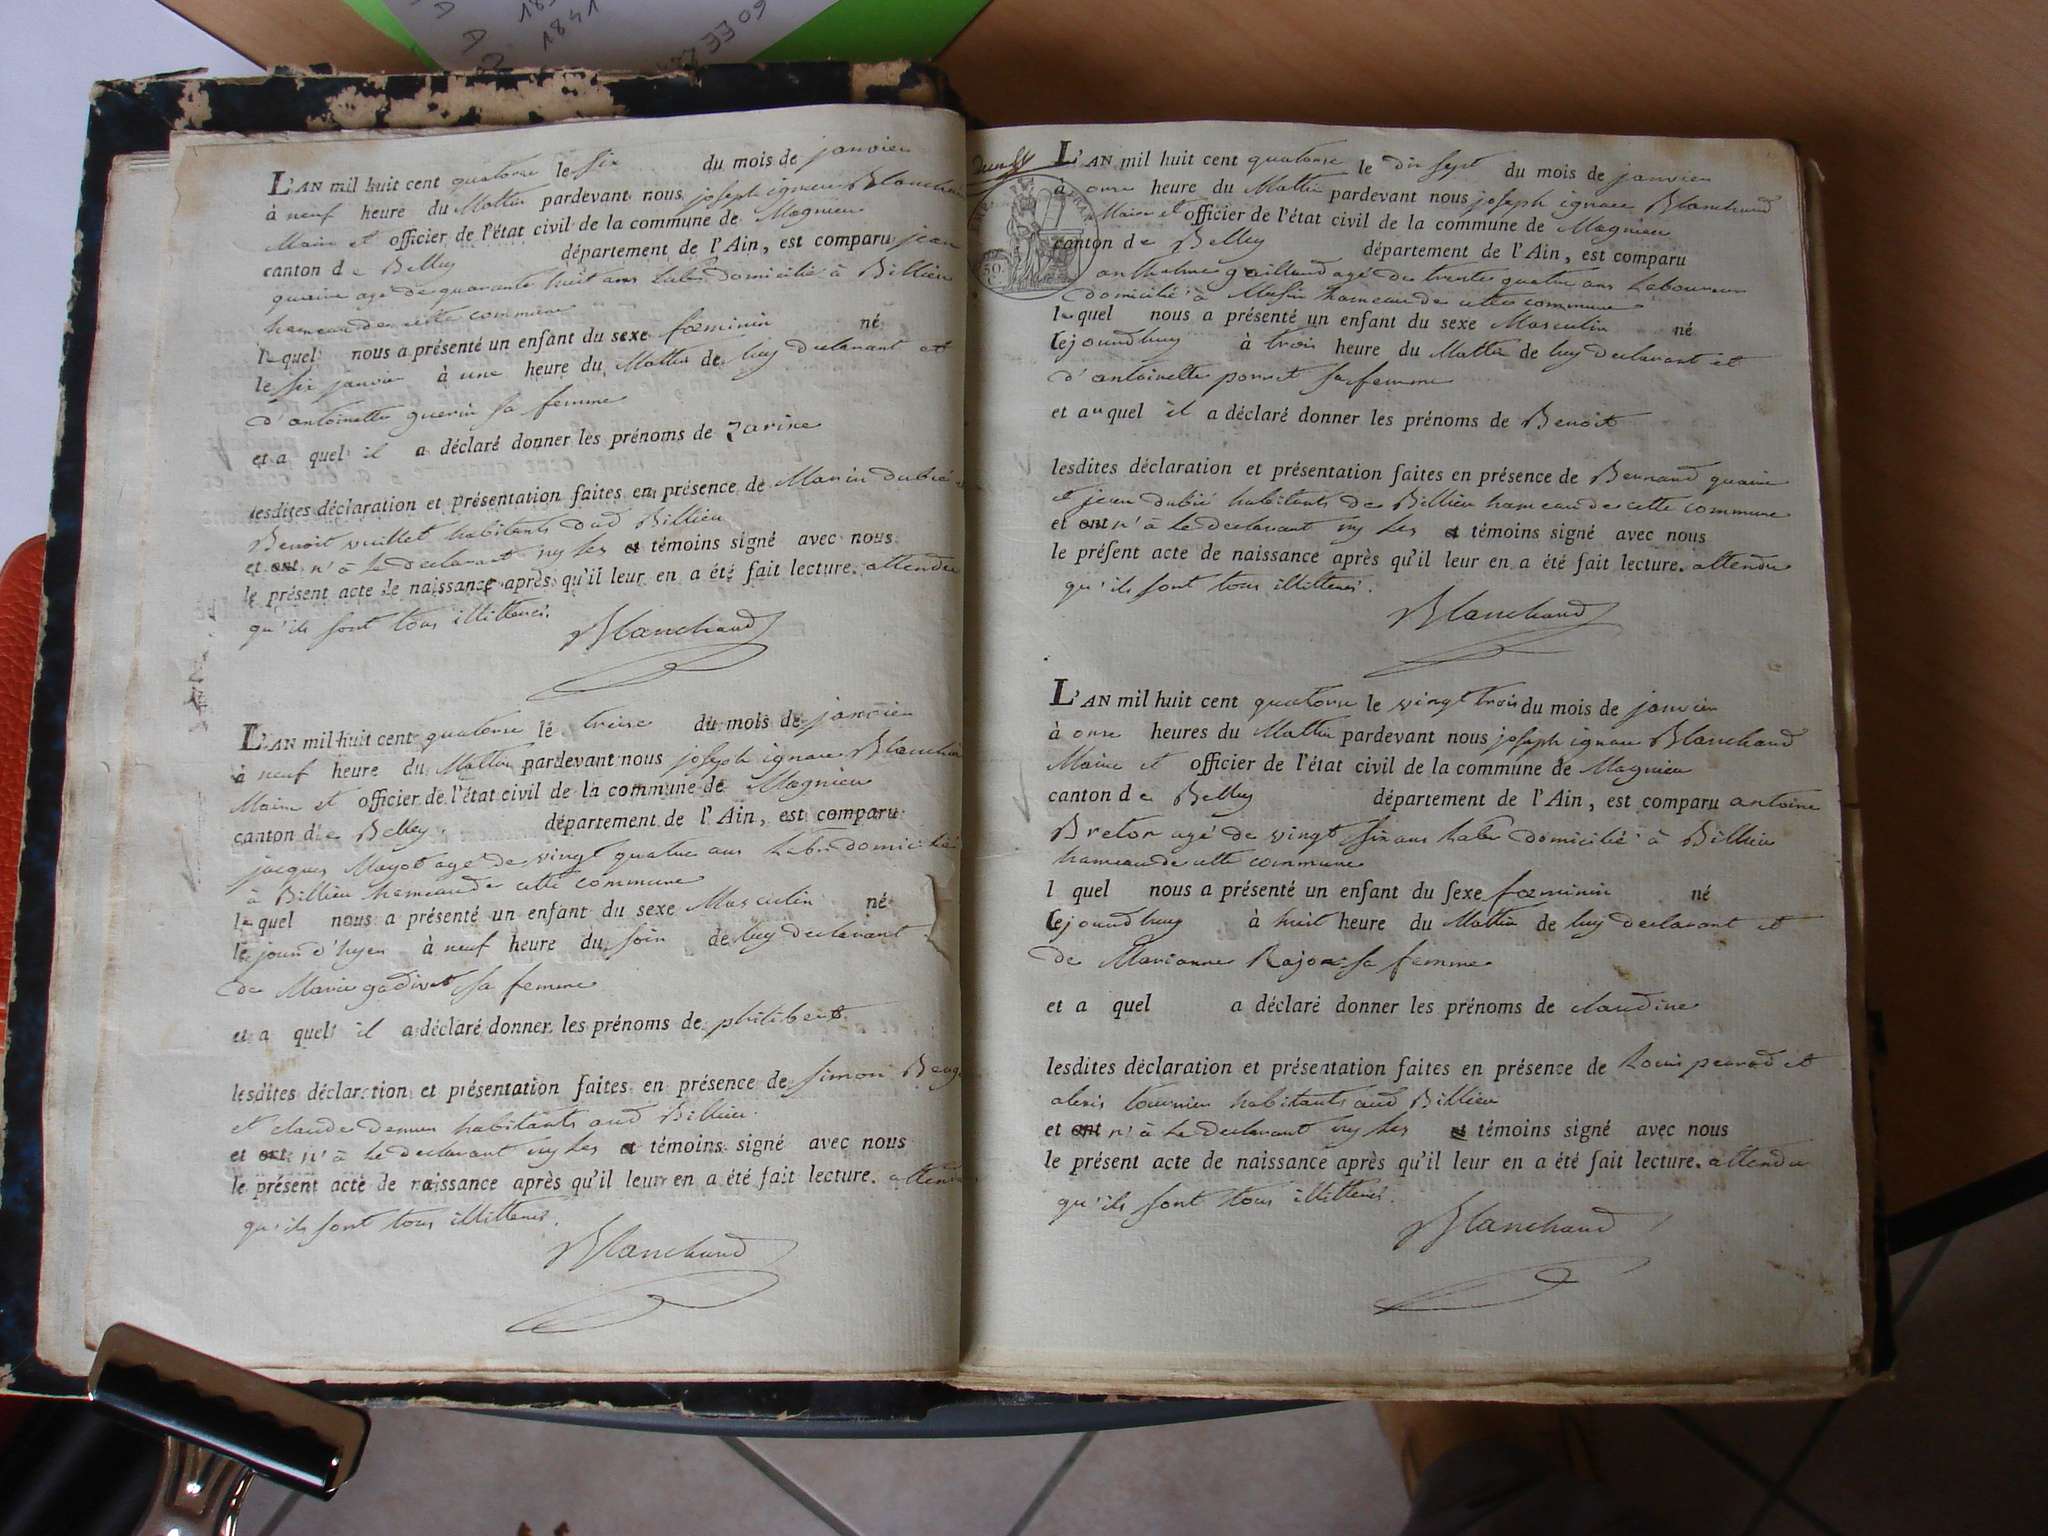 L'AN mil huit cent quatorze le six du mois de janvier
à neuf heure du Mattin pardevant nous joseph ignace Blanchard
Maire et officier de l'état civil de la commune de Magnieu
canton de Belley département de l'Ain, est comparu jean
quaire agé de quarante huit ans labr domicilié à Billieu
hameau de cette commune
lequel nous a présenté un enfant du sexe fœminin né
le six janvier à une heure du Mattin de luy declarant et
d'antoinette guerin sa femme
et a quel il a déclaré donner les prénoms de Zarine
lesdites déclaration et présentation faites en présence de Marin dubié
Benoit vuillet habitants dud Billieu
et ont n'à le declarant ny les et témoins signé avec nous
le présent acte de naissance après qu'il leur en a été fait lecture. attendu
qu'ils sont tous illitterés.
Blanchard
L'AN mil huit cent quatorze le treize du mois de janvier
à neuf heure du Mattin pardevant nous joseph ignace Blanchard
Maire et officier de l'état civil de la commune de Magnieu
canton de Belley département de l'Ain, est comparu
jacques Mayot agé de vingt quatre ans labr domicilié
à Billieu hameau de cette commune
lequel nous a présenté un enfant du sexe Masculin né
le jour d'hyer à neuf heure du soir de luy declarant
de Marie gadivet sa femme
et a quel il a déclaré donner les prénoms de philibert
lesdites déclaration et présentation faites en présence de simon
et claude habitants aud Billieu
et ont n'à le declarant ny les et témoins signé avec nous
le présent acte de naissance après qu'il leur en a été fait lecture. attendu
qu'ils sont tous illitterés.
Blanchard
L'AN mil huit cent quatorze le dix sept du mois de janvier
à onze heure du Mattin pardevant nous joseph ignace Blanchard
Maire et officier de l'état civil de la commune de Magnieu
canton de Belley département de l'Ain, est comparu
anthelme gaillard agé de trente quatre ans laboureur
domicilié à hameau de cette commune
lequel nous a présenté un enfant du sexe Masculin né
cejourdhuy à trois heure du Mattin de luy declarant et
d'antoinette sa femme
et auquel il a déclaré donner les prénoms de Benoit
lesdites déclaration et présentation faites en présence de Bernard quaire
et jean dubié habitants de Billieu hameau de cette commune
et ont n'à le declarant ny les et témoins signé avec nous
le présent acte de naissance après qu'il leur en a été fait lecture. attendu
qu'ils sont tous illitterés.
Blanchard
50.
L'AN mil huit cent quatorze le vingt trois du mois de janvier
à onze heures du Mattin pardevant nous joseph ignace Blanchard
Maire et officier de l'état civil de la commune de Magnieu
canton de Belley département de l'Ain, est comparu antoine
Breton agé de vingt six ans labr domicilié à Billieu
hameau de cette commune
l quel nous a présenté un enfant du sexe fœminin né
cejourdhuy à huit heure du Mattin de luy declarant et
de Marianne sa femme
et a quel a déclaré donner les prénoms de claudine
lesdites déclaration et présentation faites en présence de Louis et
alexis tournier habitants aud Billieu
et ont n'à le declarant ny les et témoins signé avec nous
le présent acte de naissance après qu'il leur en a été fait lecture. attendu
qu'ils sont tous illitterés.
Blanchard